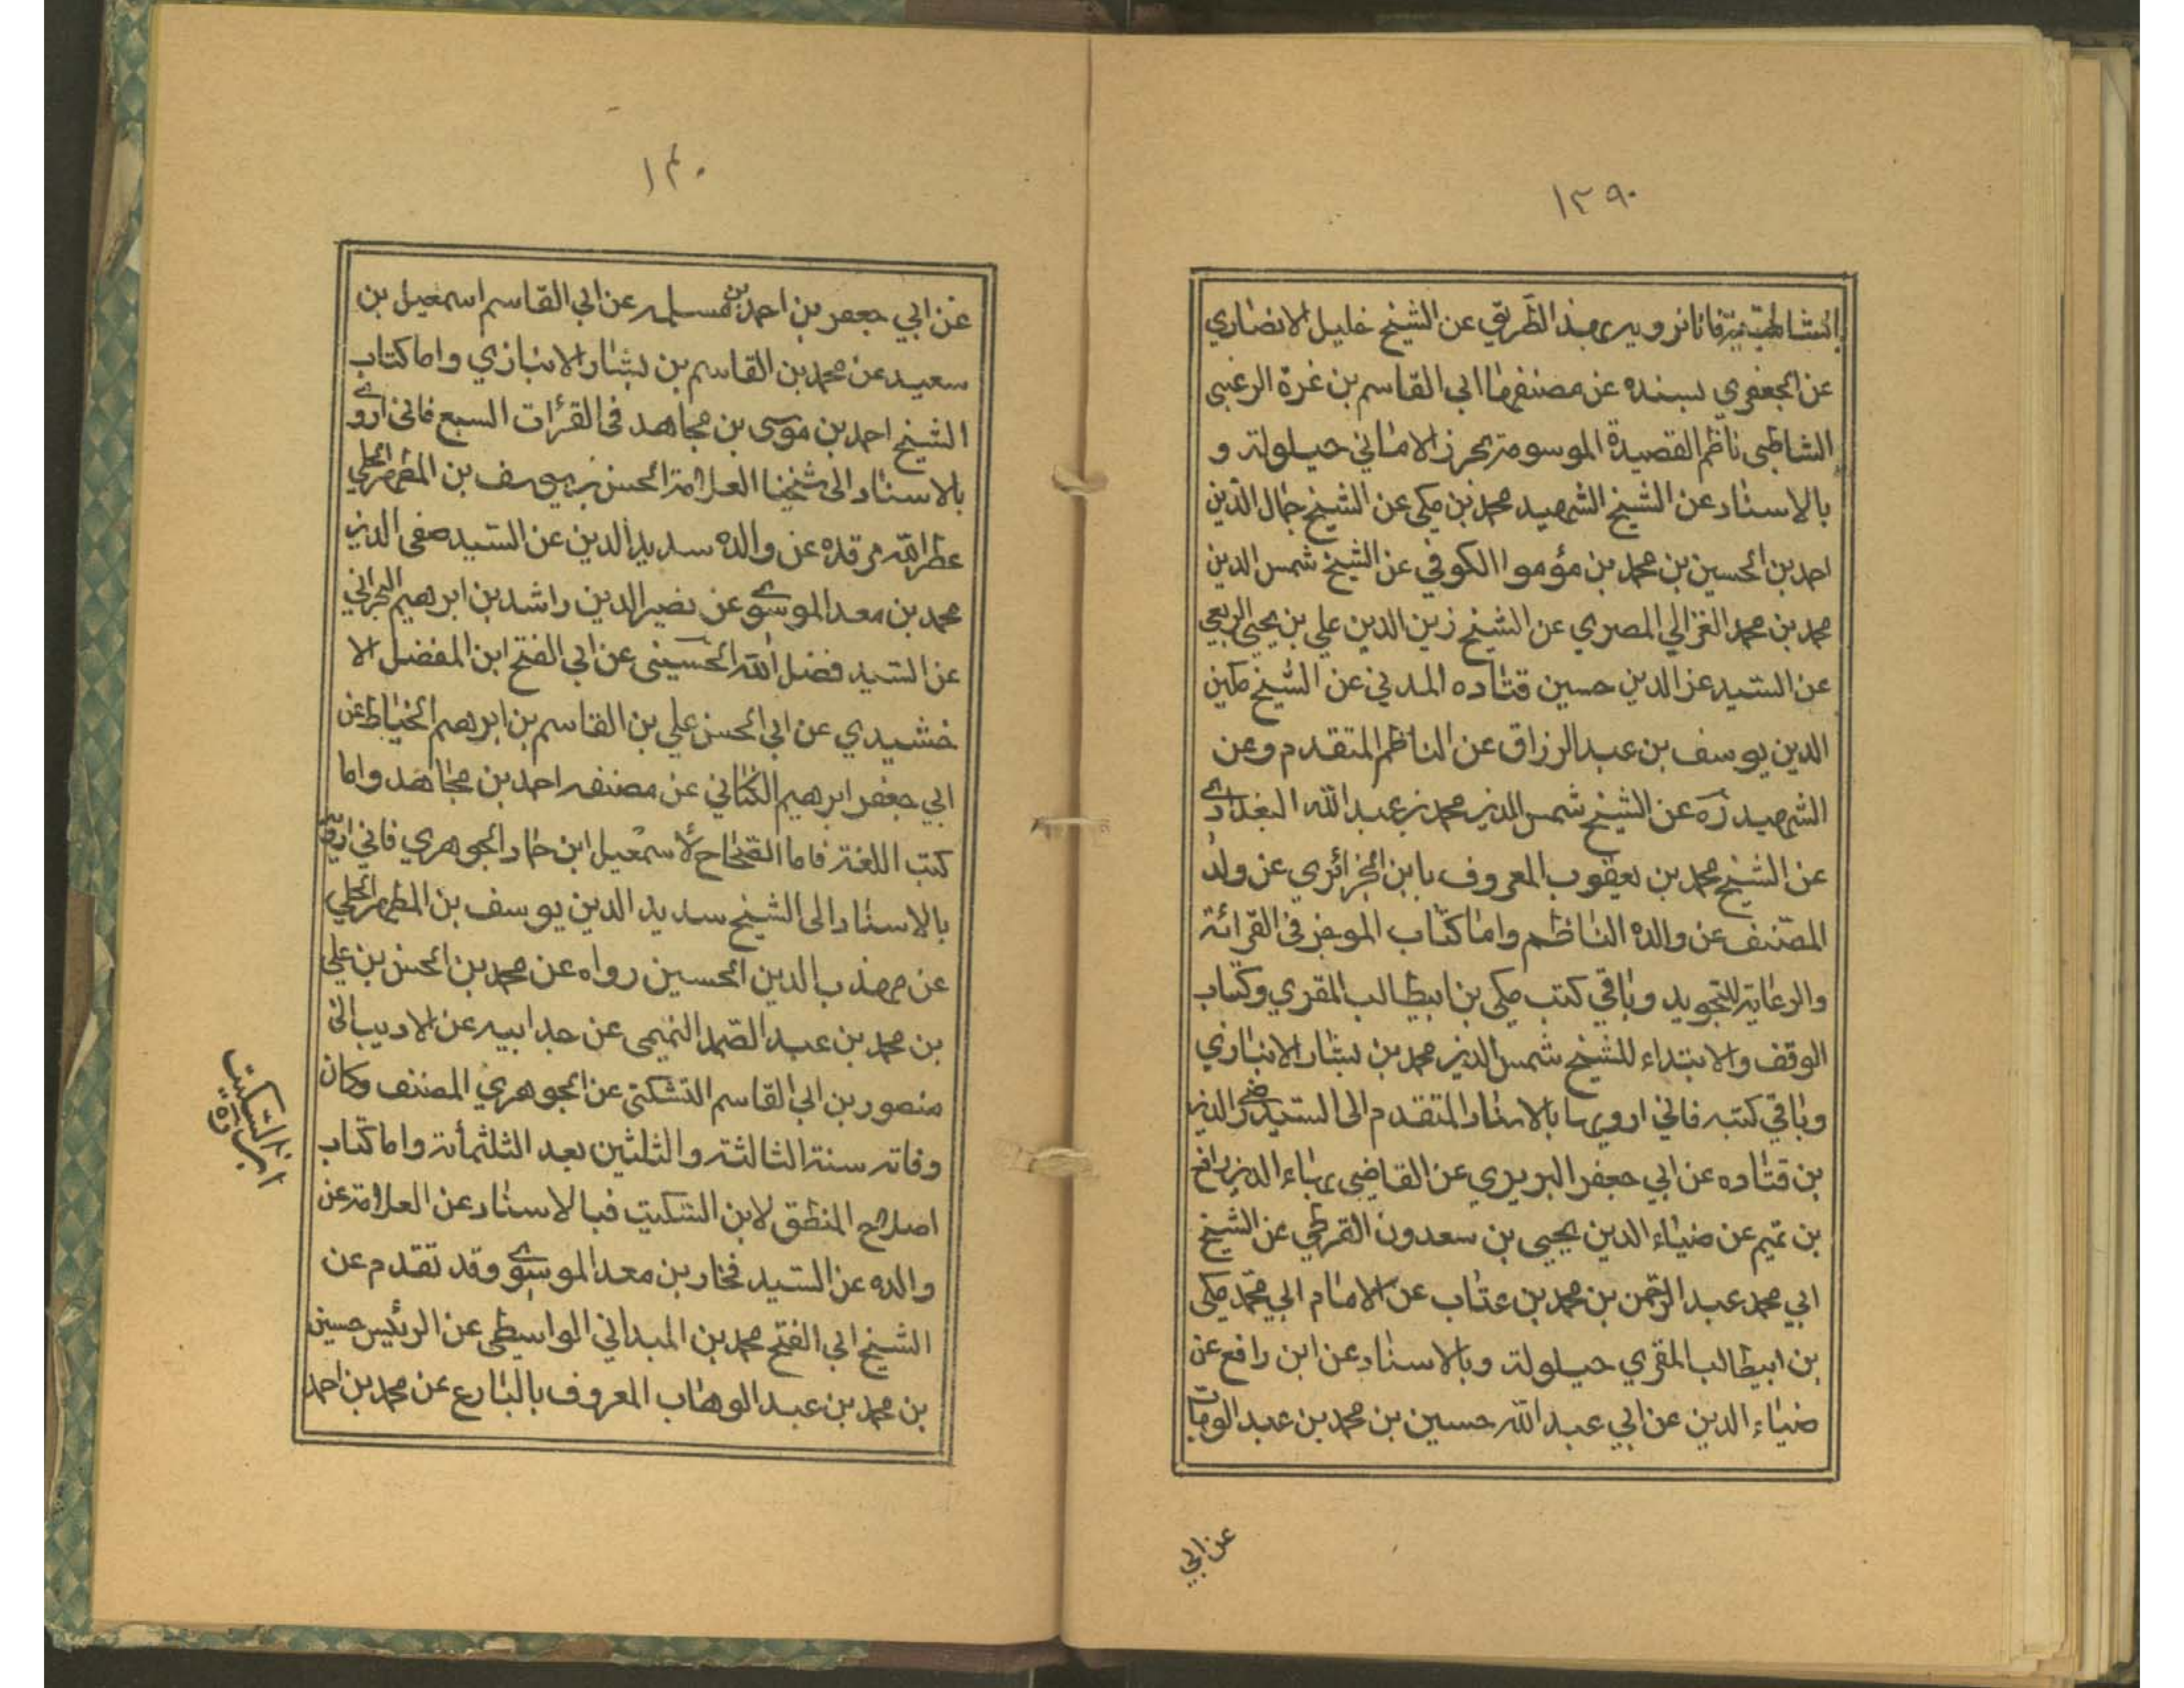 ١٣٩
الشاطبية فانا نرويه بهذا الطريق عن الشيخ خليل الانصاري
عن الجعفري بسنده عن مصنفها ابي القاسم بن غرة الرعيني
الشاطبي ناظم القصيدة الموسومة بحرز الاماني حيلولة و
بالاسناد عن الشيخ الشهيد محمد بن مكي عن الشيخ جمال الدين
احمد بن الحسين بن محمد بن مؤموا الكوفي عن الشيخ شمس الدين
محمد بن محمد الغزالي المصري عن الشيخ زين الدين علي بن يحيى الربعي
عن السيد عز الدين حسين قتاده المدني عن الشيخ مكين
الدين يوسف بن عبد الرزاق عن الناظم المتقدم وعن
الشهيد ره عن الشيخ شمس الدين محمد بن عبد الله البغدادي
عن الشيخ محمد بن يعقوب المعروف بابن الجزائري عن ولد
المصنف عن والده الناظم واما كتاب الموجز في القرائة
والرعاية للتجويد وباقي كتب مكي بن ابيطالب المقري وكتاب
الوقف والابتداء للشيخ شمس الدين محمد بن بشار الانباري
وباقي كتبه فاني ارويها بالاسناد المتقدم الى السيد الدين
بن قتاده عن ابي جعفر البريري عن القاضي بهاء الدين رافع
بن تميم عن ضياء الدين يحيى بن سعدون القرطي عن الشيخ
ابي محمد عبد الرحمن بن محمد بن عتاب عن الامام ابي محمد مكي
بن ابيطالب المقري حيلولة وبالاسناد عن ابن رافع عن
ضياء الدين عن ابي عبد الله حسين بن محمد بن عبد الوهاب
عن ابي
١٤٠
عن ابي جعفر بن احمد بن مسلمه عن ابي القاسم اسمعيل بن
سعيد عن محمد بن القاسم بن بشار الانبازي واما كتاب
الشيخ احمد بن موسى بن مجاهد في القرآت السبع فاني اروي
بالاسناد الى شيخنا العلامة الحسن بن يوسف بن المطهر الحلي
عطر الله مرقده عن والده سديد الدين عن السيد صفي الدين
محمد بن معد الموسوي عن نصير الدين راشد بن ابرهيم البحراني
عن السيد فضل الله الحسيني عن ابي الفتح ابن المفضل الا
خشيدي عن ابي الحسن علي بن القاسم بن ابرهيم الخياط عن
ابي جعفر ابرهيم الكتاني عن مصنفه احمد بن مجاهد واما
كتب اللغة فاما الصحاح لأسمعيل ابن حماد الجوهري فاني ارويه
بالاسناد الى الشيخ سديد الدين يوسف بن المطهر الحلي
عن مهذب الدين الحسين رواه عن محمد بن الحسن بن علي
بن محمد بن عبد الصمد التميمي عن جد ابيه عن الاديب ابي
منصور بن ابي القاسم التشكتي عن الجوهري المصنف وكان
وفاته سنة الثالثة والثلثين بعد الثلثمأة واما كتاب
اصلاح المنطق لابن السكيت فبالاسناد عن العلامة عن
والده عن السيد فخار بن معد الموسوي وقد تقدم عن
الشيخ ابي الفتح محمد بن الميداني الواسطي عن الرئيس حسين
بن محمد بن عبد الوهاب المعروف بالبارع عن محمد بن احمد
ابن السكيت